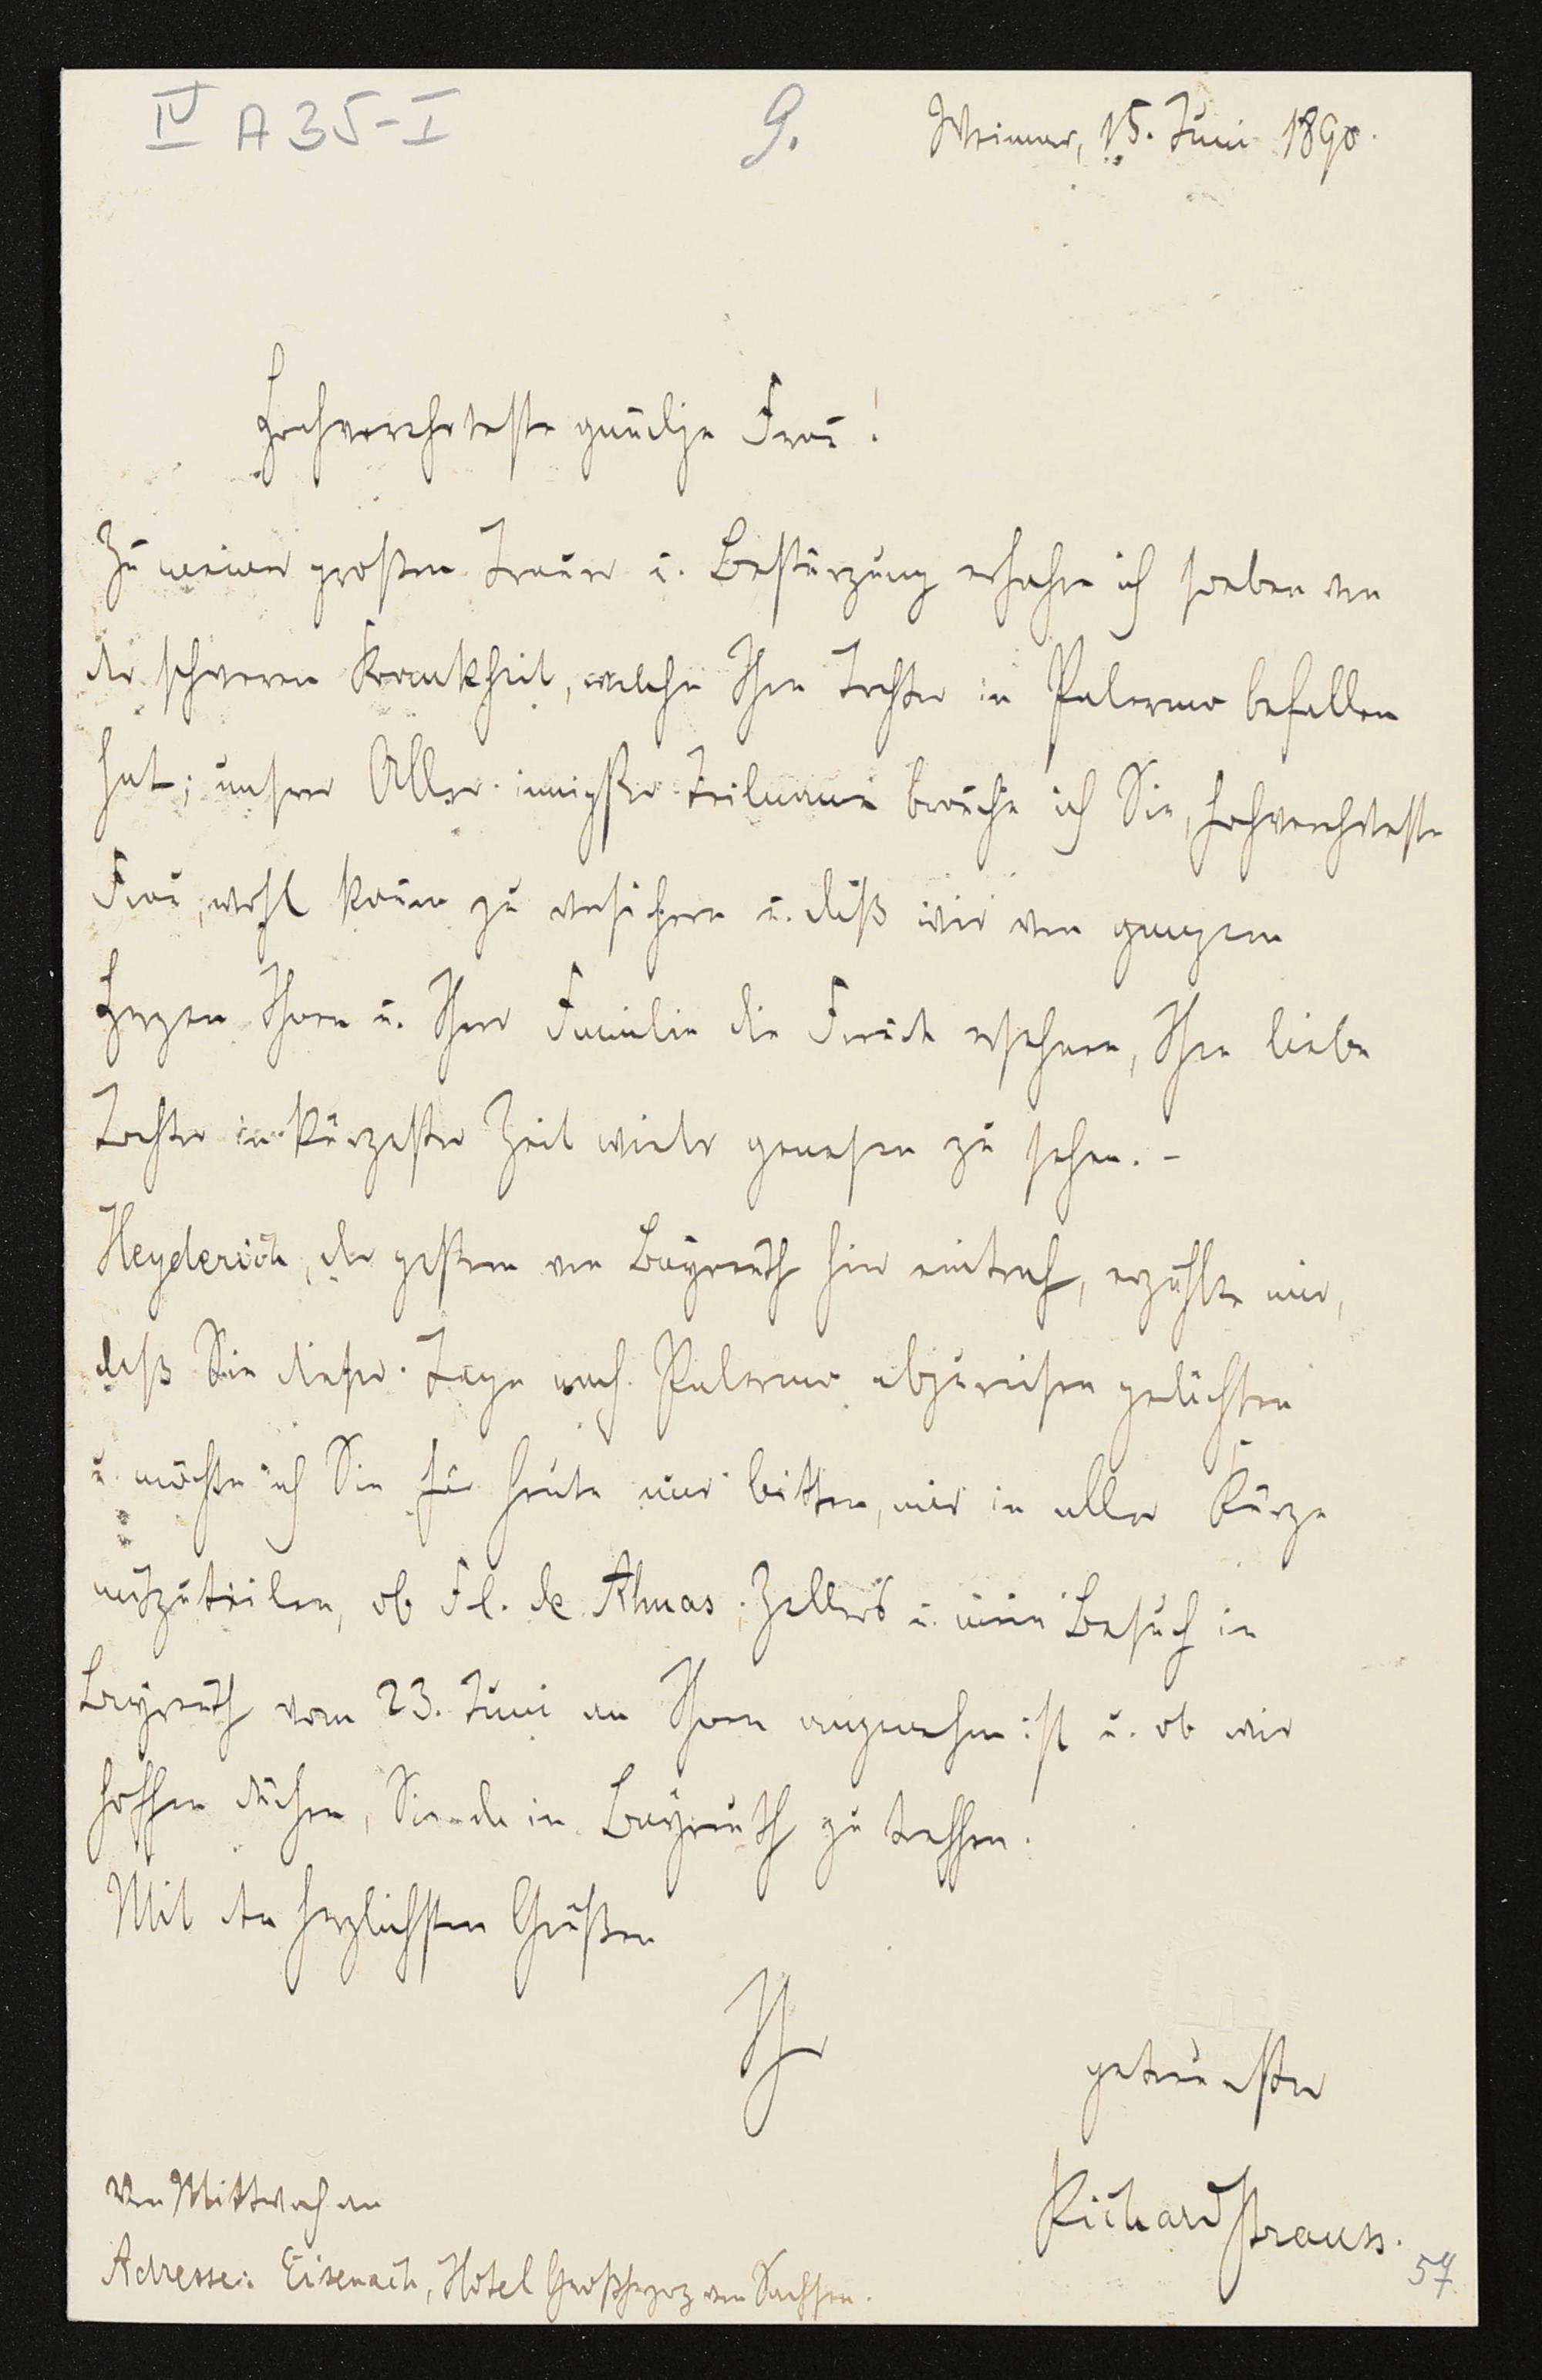 IV A 35-I
9.
Weimar, 15. Juni 1890.
Hochverehrteste gnädige Frau!
Zu meiner großen Trauer u. Bestürzung erfahre ich soeben von
der schweren Krankheit, welche Ihre Tochter in Palermo befallen
hat; unserer Aller innigster Teilnahme brauche ich Sie, hochverehrteste
Frau, wohl kaum zu versichern u. daß wir von ganzem
Herzen Ihnen u. Ihrer Familie die Freude ersehnen, Ihre liebe
Tochter in kürzester Zeit wieder genesen zu sehen. -
Heyderich, der gestern von Bayreuth hier eintraf, erzählte mir,
daß Sie dieser Tage nach Palermo abzureisen gedächten
u. möchte ich Sie für heute nur bitten, mir in aller Kürze
mitzuteilen, ob Frl. de Ahnas, Zellers u. mein Besuch in
Bayreuth vom 23. Juni an Ihnen angenehm ist u. ob wir
hoffen dürfen, Sie da in Bayreuth zu treffen.
Mit den herzlichsten Grüßen
Ihr
getreuester
Richard Strauss.
Von Mittwoch an
Adresse: Eisenach, Hôtel Großherzog von Sachsen.
57